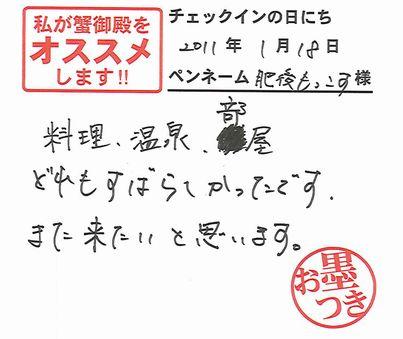 私が蟹御殿を
オススメ
します!!
チェックインの日にち
2011年1月18日
ペンネーム 肥後もっこす様
料理、温泉、部屋
どれもすばらしかったです.
また来たいと思います。
お墨つき